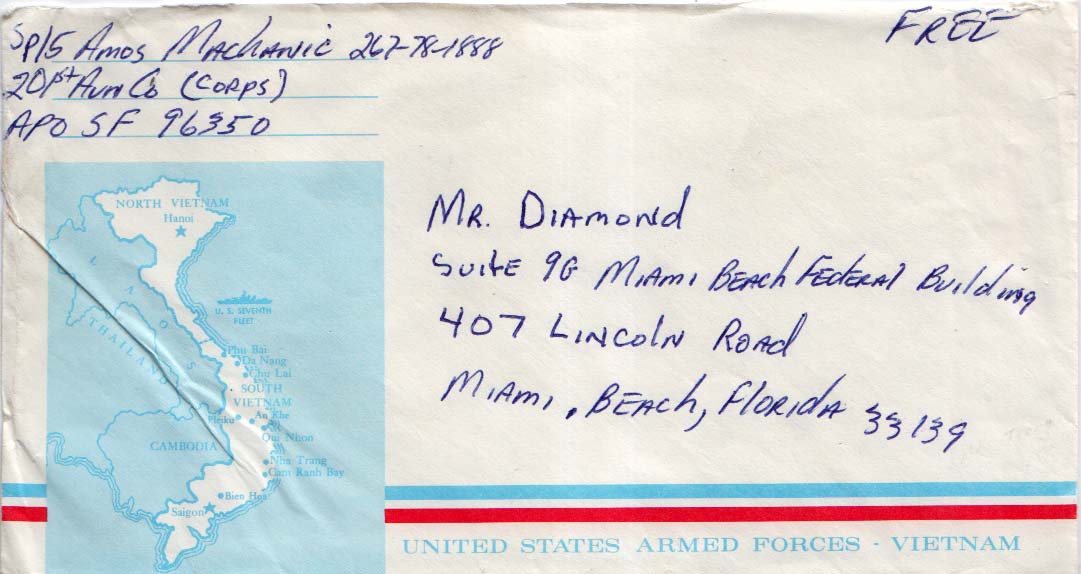 SP/5 Amos Machanic 267-78-1888
201st Avn Co (CORPS)
APO SF 96350
FREE
MR. DIAMOND
Suite 9G MIAMI BEACH FEDERAL Building
407 LINCOLN ROAD
MIAMI, BEACH, FLORIDA 33139
NORTH VIETNAM
Hanoi
LAOS
U. S. SEVENTH
FLEET
THAILAND
Phu Bai
Da Nang
Chu Lai
SOUTH
VIETNAM
Pleiku
An Khe
Qui Nhon
CAMBODIA
Nha Trang
Cam Ranh Bay
Bien Hoa
Saigon
UNITED STATES ARMED FORCES - VIETNAM